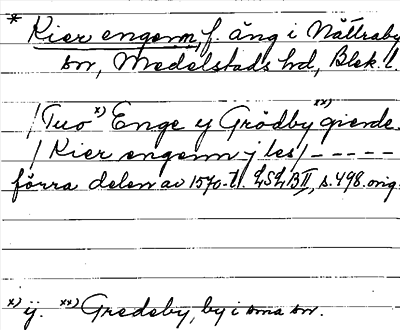 * Kier engenn, f. äng i Nättraby
sn, Medelstads hd, Blek. l.
/Tuo x) Enge y Grödby xx) gierde.
/ Kier engenn j les / - - - - -
förra delen av 1570-t. LSLB II, s. 498. orig.
x) ij. xx) Gredeby, by i sma sn.